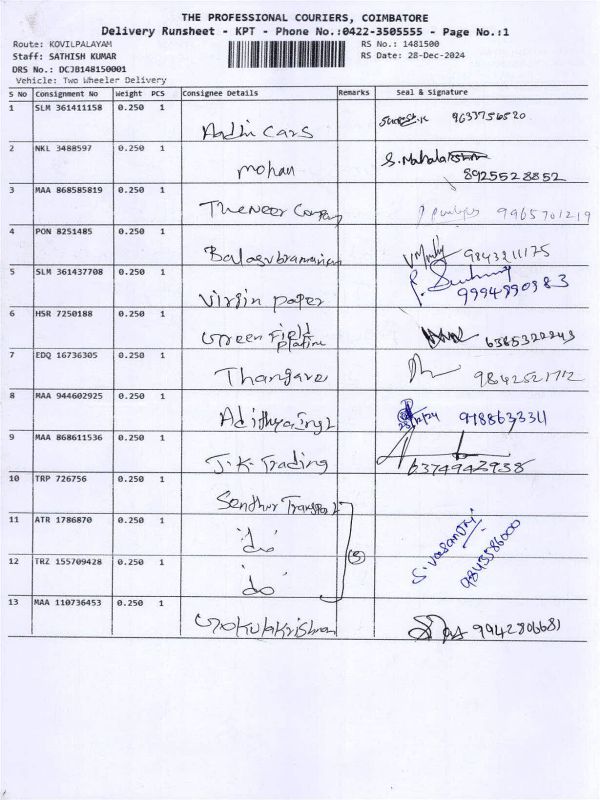 THE PROFESSIONAL COURIERS, COIMBATORE
Delivery Runsheet - KPT - Phone No.:0422-3505555 - Page No.:1
Route: KOVILPALAYAM RS No.: 1481500
Staff: SATHISH KUMAR RS Date: 28-Dec-2024
DRS No.: DCJB148150001
Vehicle: Two Wheeler Delivery
S No Consignment No Weight PCS Consignee Details Remarks Seal & Signature
1 SLM 361411158 0.250 1 Aadhi Cars 9633756520
2 NKL 3488597 0.250 1 mohan S. Mahalakshmi
8925528852
3 MAA 868585819 0.250 1 Company 9965701219
4 PON 8251485 0.250 1 Balasubramaniam 9843211175
5 SLM 361437708 0.250 1 Virgin paper 9994890983
6 HSR 7250188 0.250 1 Green Field 6385322243
7 EDQ 16736305 0.250 1 Thangavel 9842521712
8 MAA 944602925 0.250 1 28/12/24 9788633311
9 MAA 868611536 0.250 1 J.K. Trading 6374942938
10 TRP 726756 0.250 1 Senthur Transport
11 ATR 1786870 0.250 1 "do" (3) S. Vasanthi
12 TRZ 155709428 0.250 1 "do" 9843586000
13 MAA 110736453 0.250 1 Gokulakrishnan 9942806681